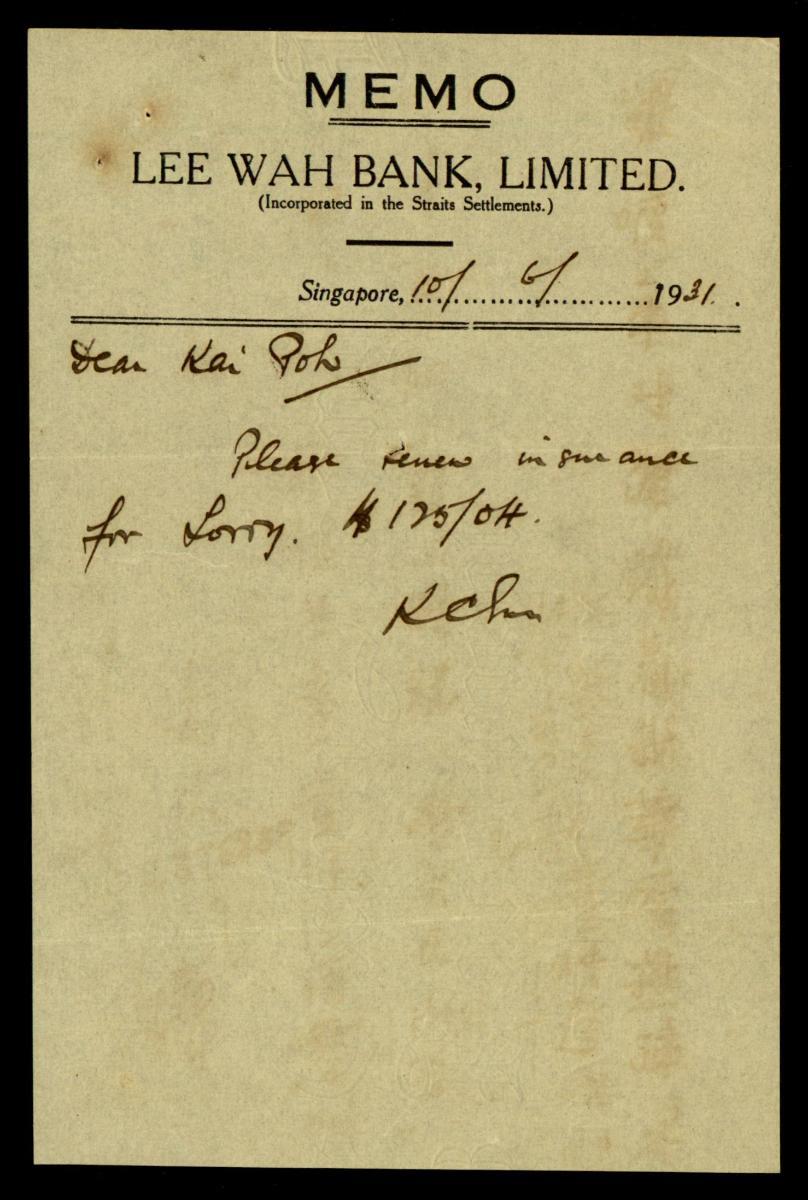 MEMO
LEE WAH BANK, LIMITED.
(Incorporated in the Straits Settlements.)
Singapore, 10/ 6/ 1931.
Dear Kai Poh
Please renew insurance
for Lorry. $125/04.